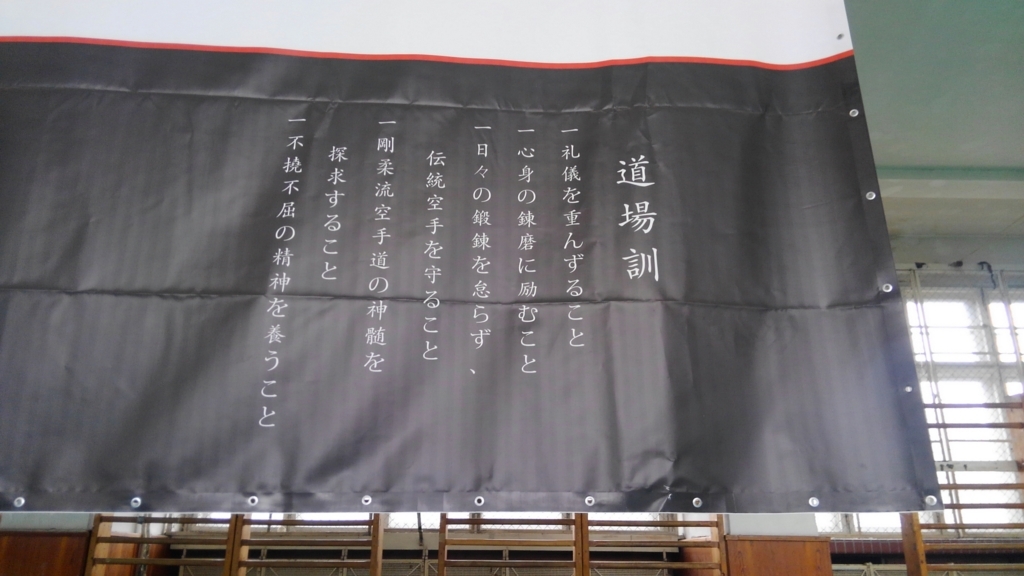 道場訓
一礼儀を重んずること
一心身の錬磨に励むこと
一日々の鍛錬を怠らず、
伝統空手を守ること
一剛柔流空手道の神髄を
探求すること
一不撓不屈の精神を養うこと